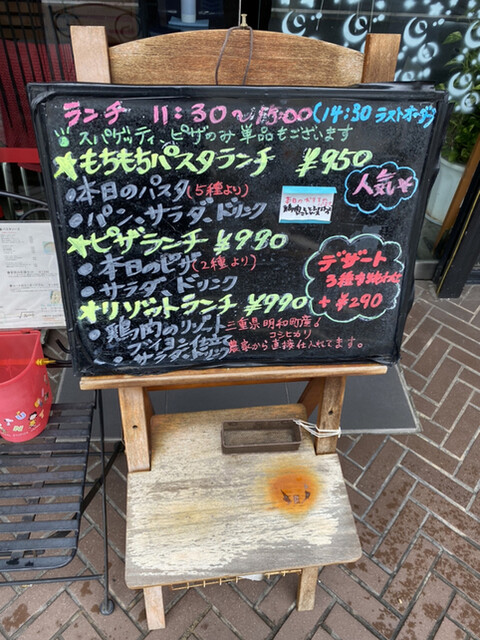 ランチ 11:30〜15:00(14:30 ラストオーダー)
スパゲッティ、ピザのみ 単品もございます
もちもちパスタランチ ¥950
人気
・本日のパスタ(5種より)
・パン、サラダ、ドリンク
ピザランチ ¥990
・本日のピザ(2種より)
・サラダ、ドリンク
デザート
3種
+ ¥290
リゾットランチ ¥990
・鶏肉のリゾット
・ブイヨン仕立て
・サラダ、ドリンク
三重県明和町産
コシヒカリ
農家から直接仕入れてます。